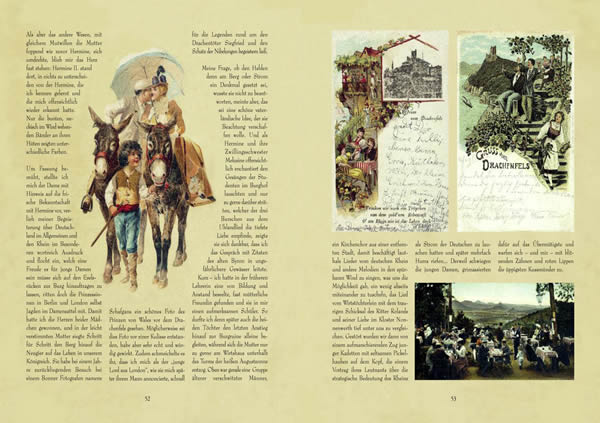 Als aber das andere Wesen, mit
gleichem Mutwillen die Mutter
foppend wie zuvor Hermine, sich
umdrehte, blieb mir das Herz
fast stehen: Hermine II. stand
dort, in nichts zu unterschei-
den von der Hermine, die
ich kennen gelernt und
die mich offensichtlich
wieder erkannt hatte.
Nur die bunten, ne-
ckisch im Wind wehen-
den Bänder an ihren
Hüten zeigten unter-
schiedliche Farben.
Um Fassung be-
müht, stellte ich
mich der Dame mit
Hinweis auf die fri-
sche Bekanntschaft
mit Hermine vor, ver-
lieh meiner Begeis-
terung über Deutsch-
land im Allgemeinen und
den Rhein im Besonde-
ren wortreich Ausdruck
und flocht ein, welch eine
Freude es für junge Damen
sein müsse sich auf den Esels-
rücken zur Burg hinauftragen zu
lassen, ritten doch die Prinzessin-
nen in Berlin und London selbst
tagtäglich im Damensattel mit. Damit
hatte ich die Herzen beider Mäd-
chen gewonnen, und in der leicht
verstimmten Mutter siegte Schritt
für Schritt den Berg hinauf die
Neugier auf das Leben in unserem
Königreich. Sie habe bei einem Jah-
re zurückliegenden Besuch bei
einem Bonner Fotografen namens
Schafgans ein schönes Foto des
Prinzen von Wales vor dem Dra-
chenfels gesehen. Möglicherweise sei
das Foto vor einer Kulisse entstan-
den, habe aber sehr echt und wür-
dig gewirkt. Zudem schmeichelte es
ihr, dass ich mich als der „junge
Lord aus London", wie sie mich spä-
ter ihrem Mann annoncierte, schnell
für die Legenden rund um den
Drachentöter Siegfried und den
Schatz der Nibelungen begeistern ließ.
Meine Frage, ob den Helden
denn am Berg oder Strom
ein Denkmal gesetzt sei,
wusste sie nicht zu beant-
worten, meinte aber, das
sei eine schöne vater-
ländische Idee, der sie
Beachtung verschaf-
fen wolle. Und als
Hermine und ihre
Zwillingsschwester
Melusine offensicht-
lich enchantiert den
Gesängen der Stu-
denten im Burghof
lauschten und nur
zu gerne darüber strit-
ten, welcher der drei
Burschen aus dem
Uhlandlied die tiefste
Liebe empfinde, zeigte
sie sich dankbar, dass ich
das Gespräch mit Zitaten
des alten Byron in unge-
fährlichere Gewässer leitete.
Kurz – ich hatte in der früheren
Lehrerin eine von Bildung und
Anstand beseelte, fast mütterliche
Freundin gefunden und sie in mir
einen aufmerksamen Schüler. So
durfte ich denn später auch die bei-
den Töchter den letzten Anstieg
hinauf zur Burgruine alleine be-
gleiten, während sich ihre Mutter nur
zu gerne am Wirtshaus unterhalb
des Turms der heißen Augustsonne
entzog. Oben war gerade eine Gruppe
älterer verschwitzter Männer,
52
Gruss
vom Drachenfels
Trinken wir noch ein Tröpfchen
Gruss vom
DRACHENFELS
ein Kirchenchor aus einer entfern-
ten Stadt, damit beschäftigt laut-
hals Lieder vom deutschen Rhein
und andere Melodien in den spür-
baren Wind zu singen, was uns die
Möglichkeit gab, ein wenig abseits
miteinander zu tuscheln, das Lied
vom traurigen Schicksal des Ritter Rolands
und seiner Liebe im Kloster Non-
nenwerth tief unter uns zu verglei-
chen. Gestört wurden wir dann von
einem aufmarschierenden Zug jun-
ger Kadetten mit seltsamen Pickel-
hauben auf dem Kopf, die einem
Vortrag ihres Leutnants über die
strategische Bedeutung des Rheins
als Strom der Deutschen zu lau-
schen hatten und später mehrfach
Hurra riefen... Derweil schwiegen
die jungen Damen, grimassierten
dafür auf das Übermütigste und
warfen sich – und mir – mit blit-
zenden Zähnen und roten Lippen
die üppigsten Kussmünder zu.
53